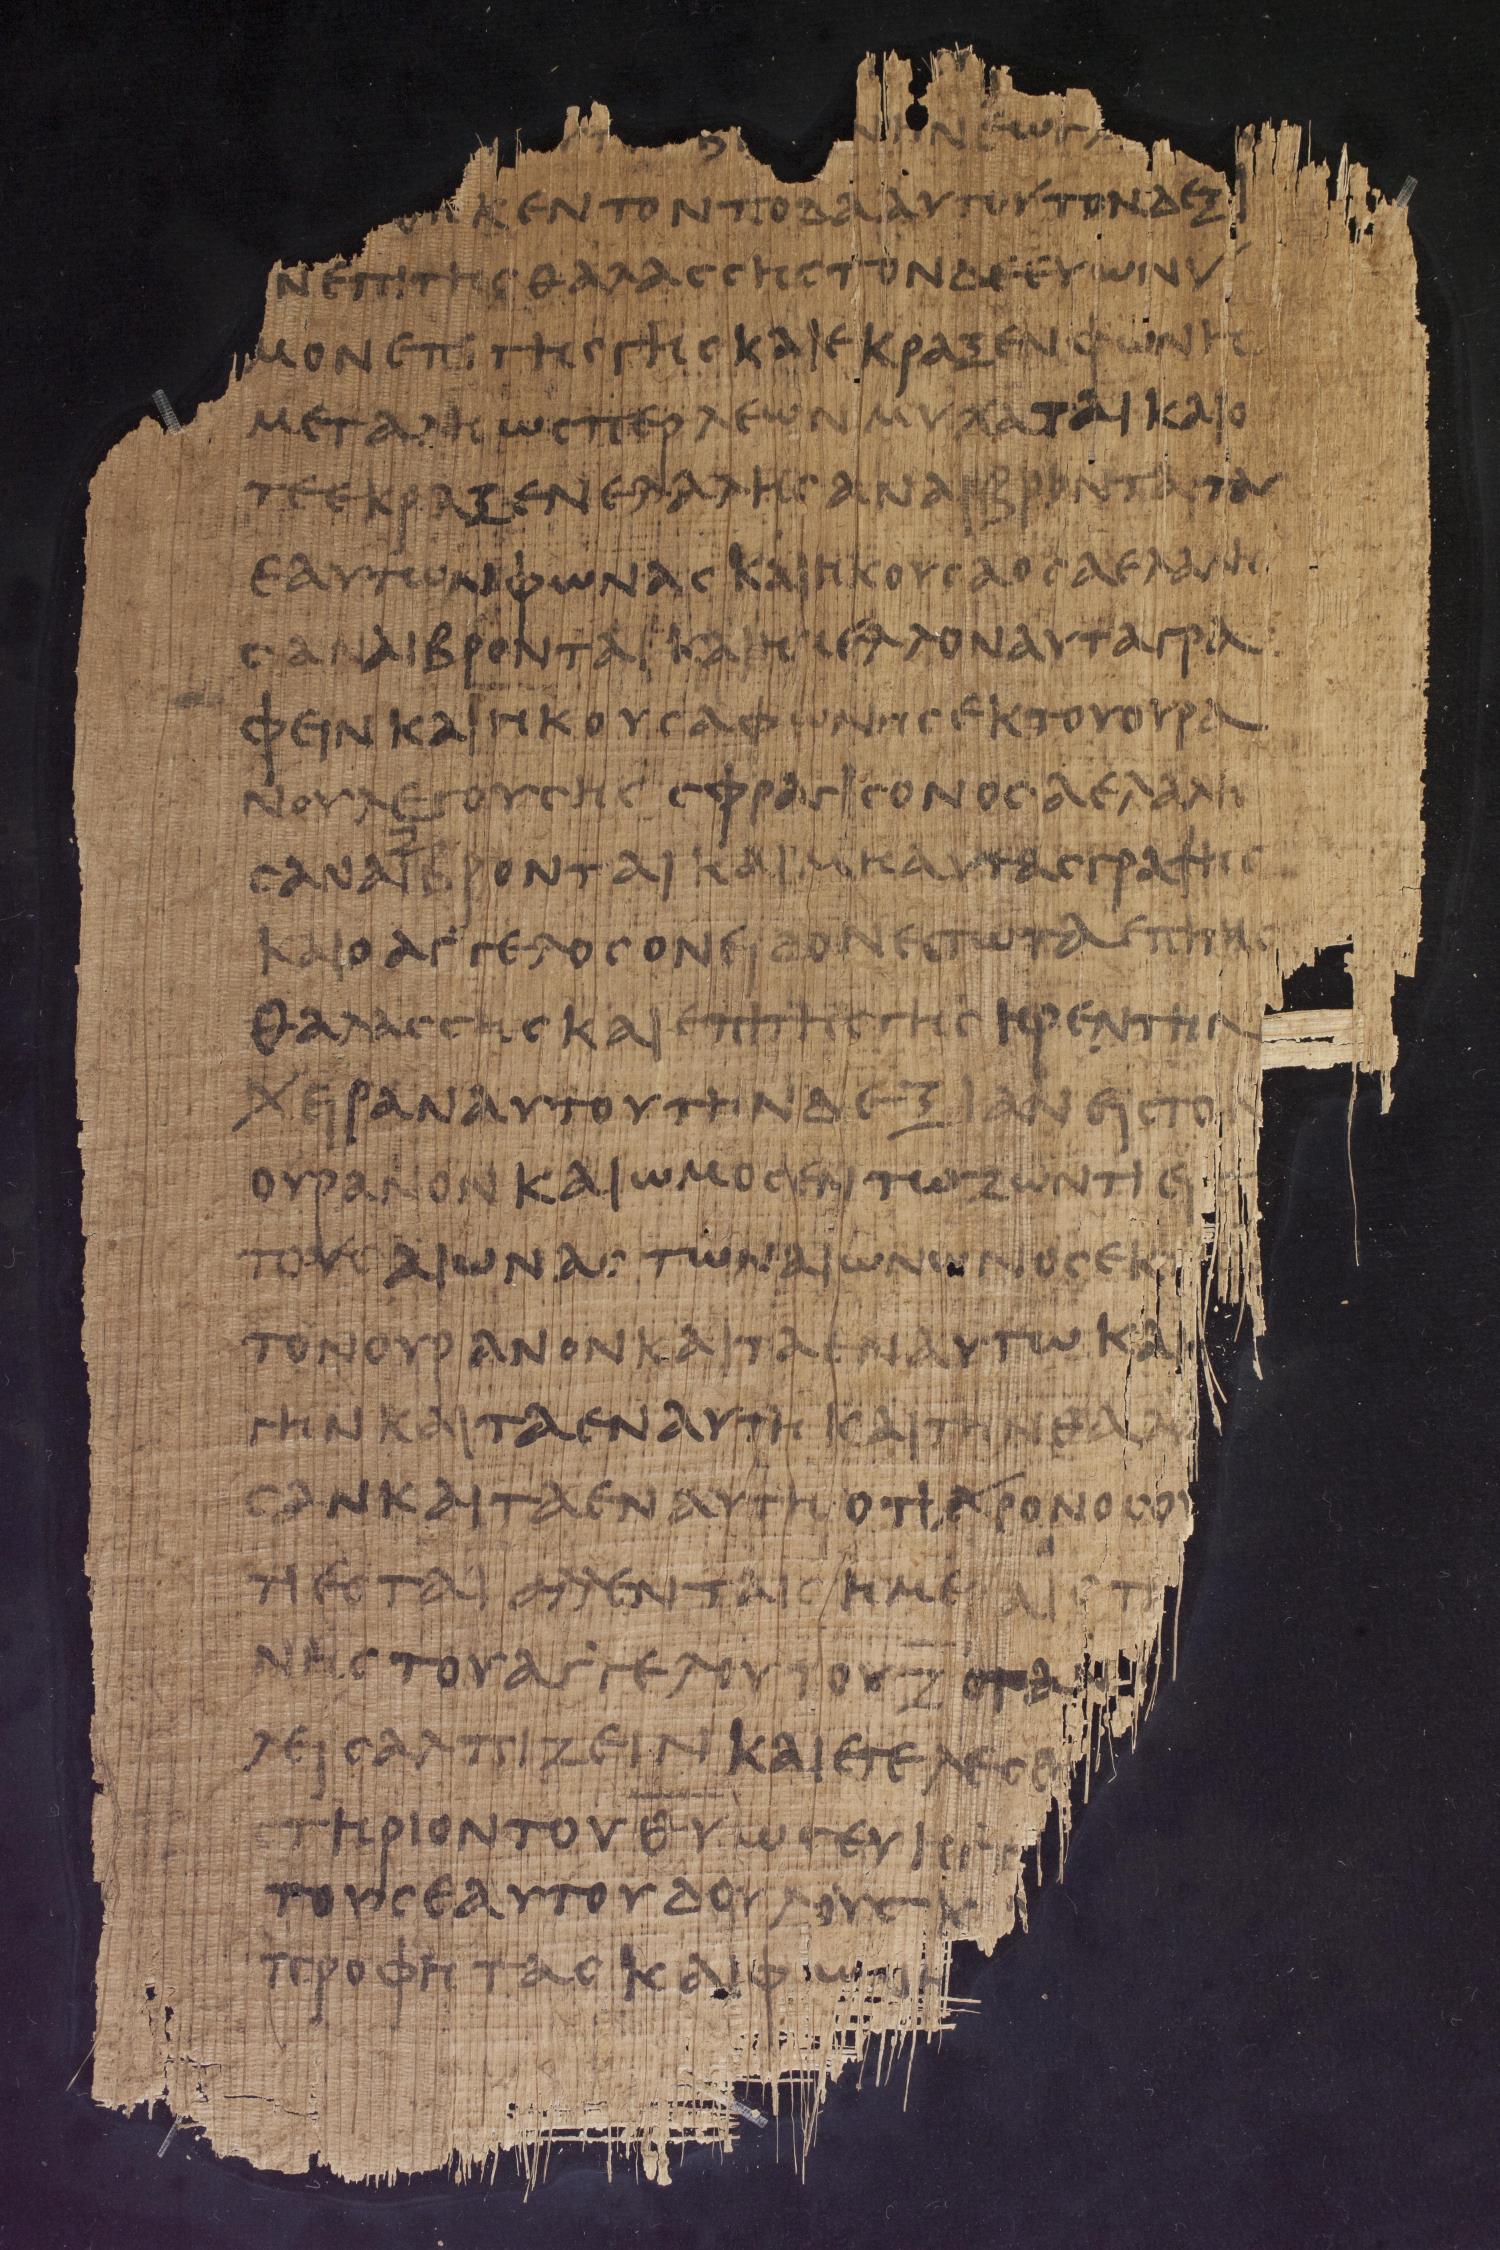 ΚΕΝ ΤΟΝ ΠΟΔΑ ΑΥΤΟΥ ΤΟΝ ΔΕΞΙ
Ν ΕΠΙ ΤΗΣ ΘΑΛΑΣΣΗΣ ΤΟΝ ΔΕ ΕΥΩΝΥ
ΜΟΝ ΕΠΙ ΤΗΣ ΓΗΣ ΚΑΙ ΕΚΡΑΞΕΝ ΦΩΝΗ
ΜΕΓΑΛΗ ΩΣΠΕΡ ΛΕΩΝ ΜΥΚΑΤΑΙ ΚΑΙ Ο
ΤΕ ΕΚΡΑΞΕΝ ΕΛΑΛΗΣΑΝ ΑΙ ΒΡΟΝΤΑΙ
ΕΑΥΤΩΝ ΦΩΝΑΣ ΚΑΙ ΗΚΟΥΣΑ ΟΣΑ ΕΛΑΛΗ
ΣΑΝ ΑΙ ΒΡΟΝΤΑΙ ΚΑΙ ΗΜΕΛΛΟΝ ΑΥΤΑ ΓΡΑ
ΦΕΙΝ ΚΑΙ ΗΚΟΥΣΑ ΦΩΝΗΣ ΕΚ ΤΟΥ ΟΥΡΑ
ΝΟΥ ΛΕΓΟΥΣΗΣ ΣΦΡΑΓΙΣΟΝ ΟΣΑ ΕΛΑΛΗ
ΣΑΝ ΑΙ Ζ ΒΡΟΝΤΑΙ ΚΑΙ ΜΗ ΑΥΤΑΣ ΓΡΑΦΗΣ
ΚΑΙ Ο ΑΓΓΕΛΟΣ ΟΝ ΕΙΔΟΝ ΕΣΤΩΤΑ ΕΠΙ ΤΗΣ
ΘΑΛΑΣΣΗΣ ΚΑΙ ΕΠΙ ΤΗΣ ΓΗΣ ΗΡΕΝ ΤΗΝ
ΧΕΙΡΑΝ ΑΥΤΟΥ ΤΗΝ ΔΕΞΙΑΝ ΕΙΣ ΤΟΝ
ΟΥΡΑΝΟΝ ΚΑΙ ΩΜΟΣΕΝ ΤΩ ΖΩΝΤΙ ΕΙ
ΤΟΥΣ ΑΙΩΝΑΣ ΤΩΝ ΑΙΩΝΩΝ ΟΣ ΕΚ
ΤΟΝ ΟΥΡΑΝΟΝ ΚΑΙ ΤΑ ΕΝ ΑΥΤΩ ΚΑΙ
ΓΗΝ ΚΑΙ ΤΑ ΕΝ ΑΥΤΗ ΚΑΙ ΤΗΝ ΘΑΛΑ
ΣΑΝ ΚΑΙ ΤΑ ΕΝ ΑΥΤΗ ΟΤΙ ΧΡΟΝΟΣ ΟΥ
ΤΙ ΕΣΤΑΙ ΑΛΛ ΕΝ ΤΑΙΣ ΗΜΕΡΑΙΣ Τ
ΝΗΣ ΤΟΥ ΑΓΓΕΛΟΥ ΤΟΥ Ζ ΟΤΑΝ
ΛΕΙ ΣΑΛΠΙΖΕΙΝ ΚΑΙ ΕΤΕΛΕΣΘ
ΣΤΗΡΙΟΝ ΤΟΥ ΘΥ ΩΣ ΕΥΗΓΓΕ
ΤΟΥΣ ΕΑΥΤΟΥ ΔΟΥΛΟΥΣ Κ
ΠΡΟΦΗΤΑΣ ΚΑΙ ΦΩΝΗ